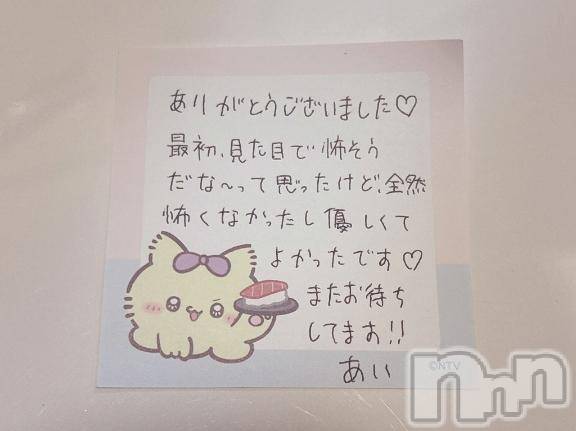 ありがとうございました♡
最初、見た目で怖そう
だな〜って思ったけど、全然
怖くなかったし優しくて
よかったです♡
またお待ち
してます!!
あい
©NTV
nnn